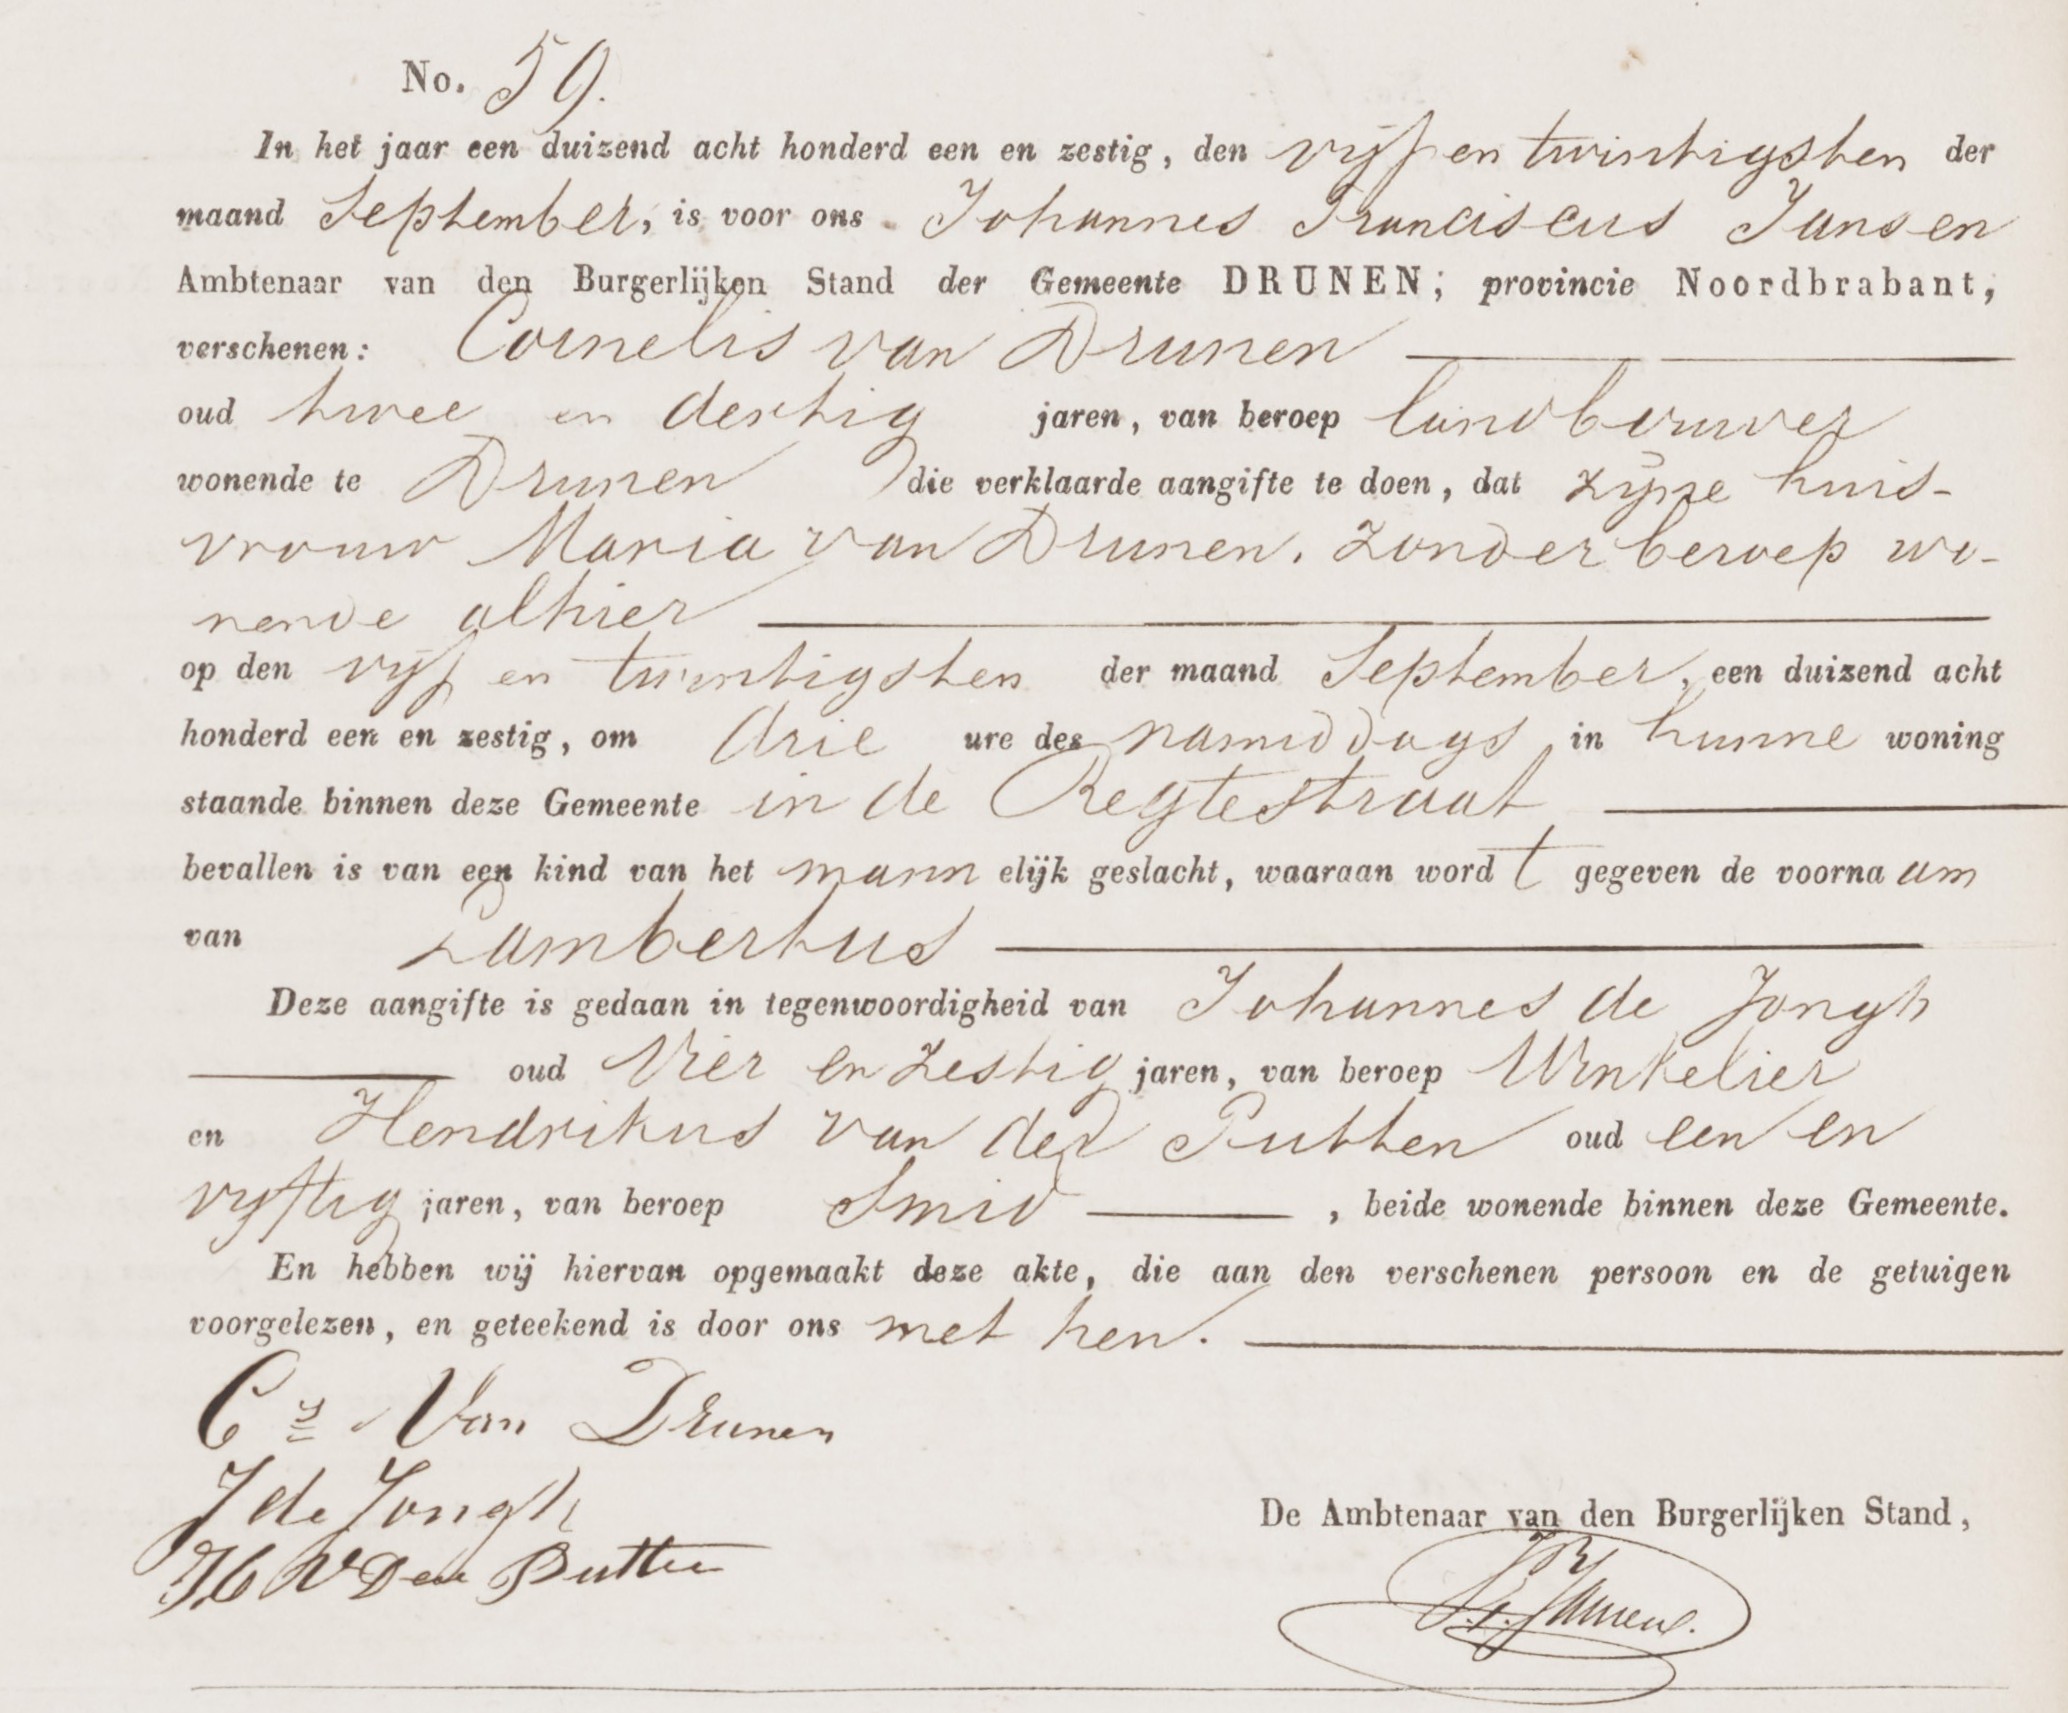 No. 59.
In het jaar een duizend acht honderd een en zestig, den vijf en twintigsten der
maand September, is voor ons Johannes Franciscus Jansen
Ambtenaar van den Burgerlijken Stand der Gemeente DRUNEN; provincie Noordbrabant,
verschenen: Cornelis van Drunen
oud twee en dertig jaren, van beroep landbouwer
wonende te Drunen die verklaarde aangifte te doen, dat zijne huis-
vrouw Maria van Drunen, zonder beroep wo-
nende alhier
op den vijf en twintigsten der maand September, een duizend acht
honderd een en zestig, om drie ure des namiddags in hunne woning
staande binnen deze Gemeente in de Regtestraat
bevallen is van een kind van het mannelijk geslacht, waaraan wordt gegeven de voornaam
van Lambertus
Deze aangifte is gedaan in tegenwoordigheid van Johannes de Jongh
oud Vier en zestig jaren, van beroep Winkelier
en Hendrikus van der Putten oud een en
vyftig jaren, van beroep Smid, beide wonende binnen deze Gemeente.
En hebben wij hiervan opgemaakt deze akte, die aan den verschenen persoon en de getuigen
voorgelezen, en geteekend is door ons met hen.
Cs Van Drunen
J de Jongh
H V Der Putten
De Ambtenaar van den Burgerlijken Stand,
Jansen.